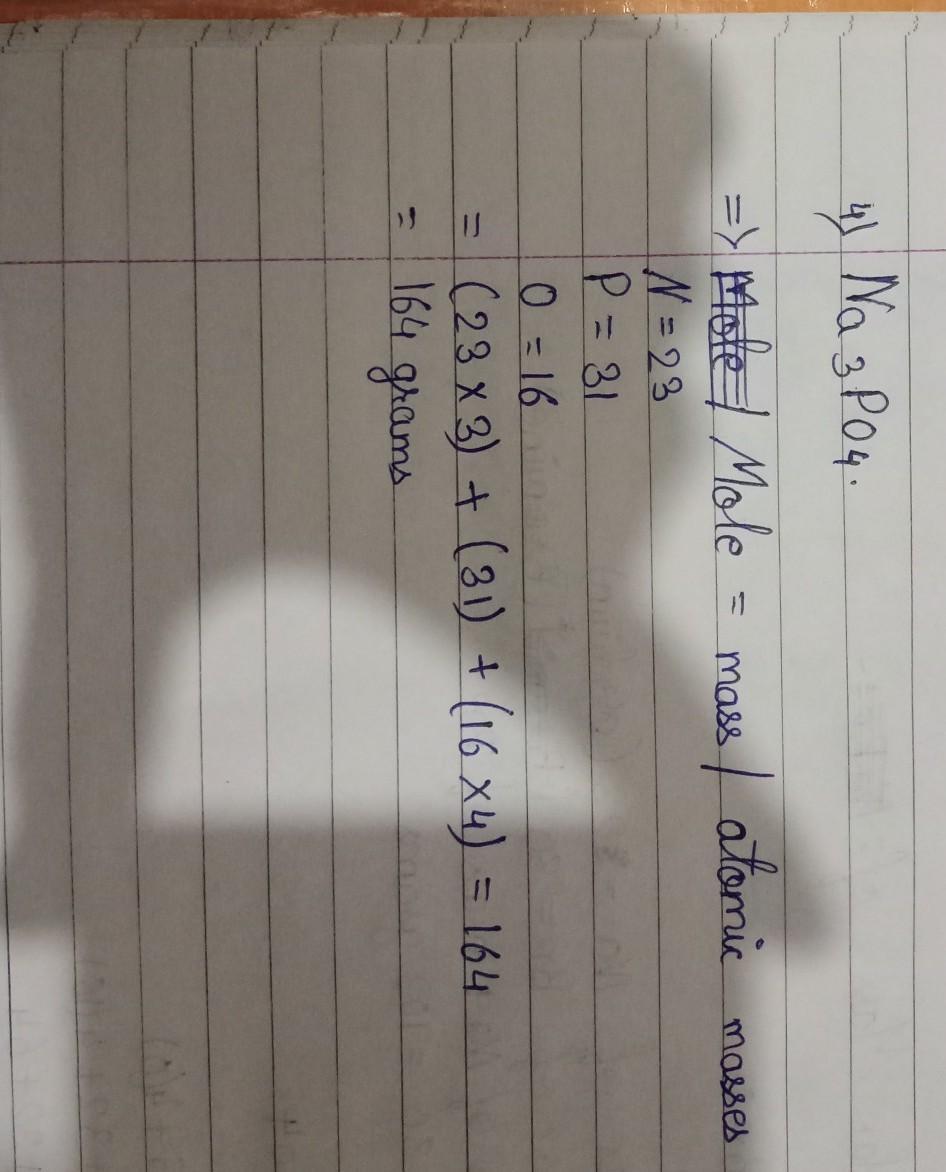 4) Na3PO4.
=> Mole = mass / atomic masses
N = 23
P = 31
O = 16
= (23 x 3) + (31) + (16 x 4) = 164
= 164 grams